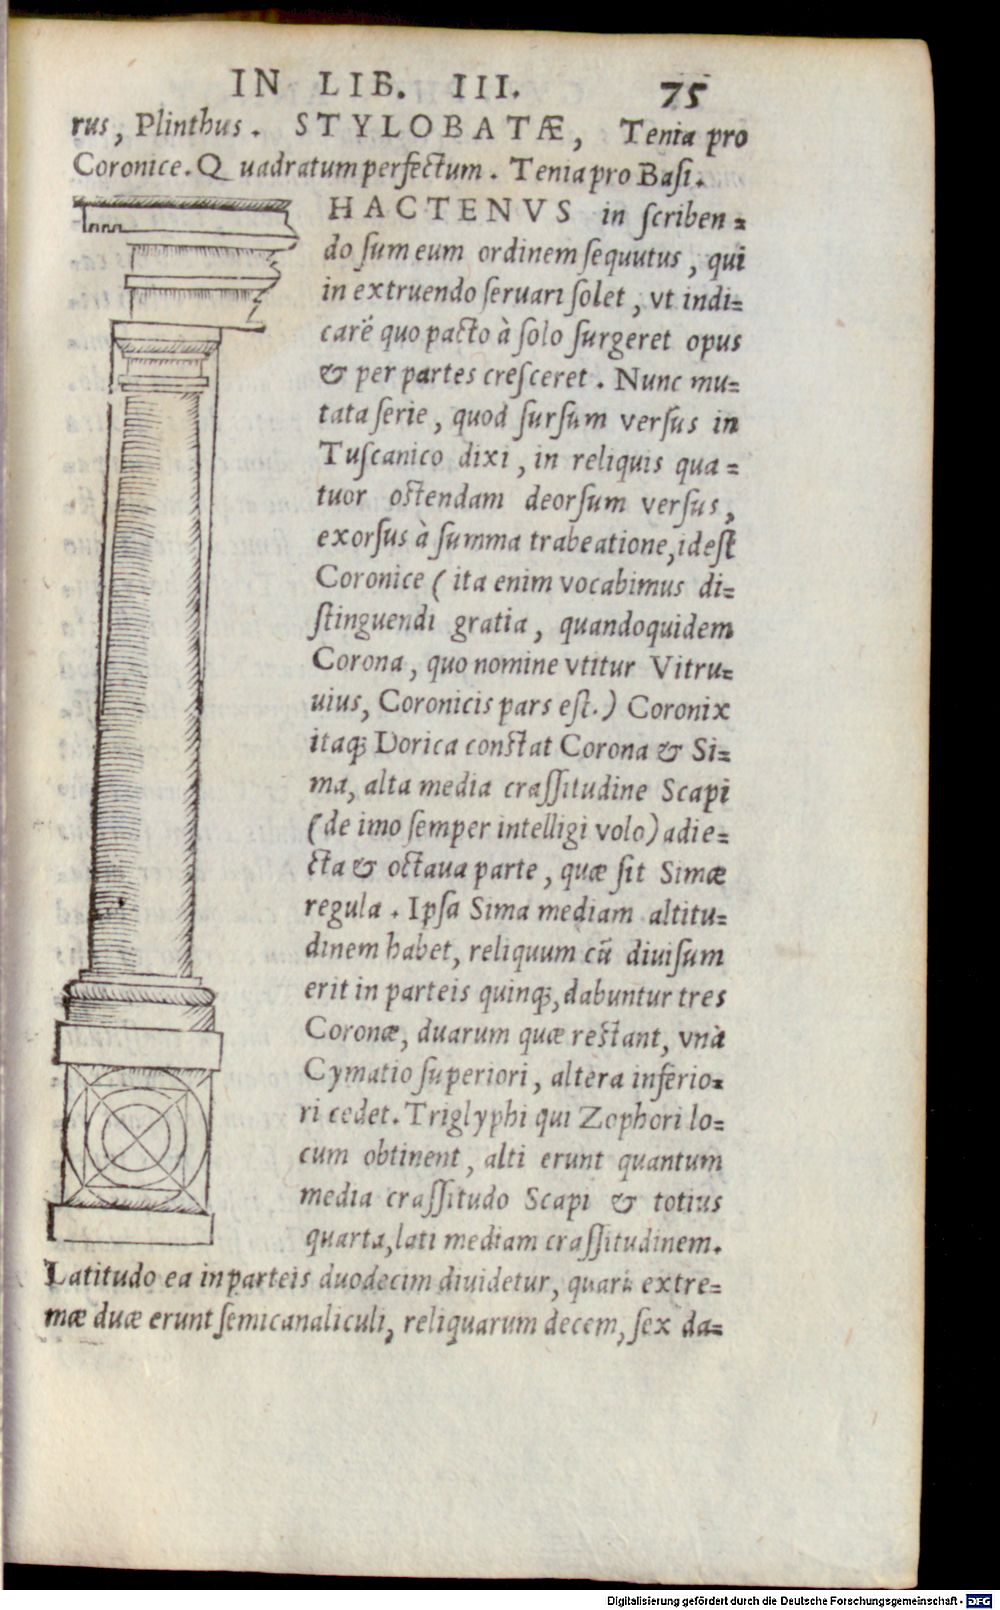 IN LIB. III. 75
rus, Plinthus. STYLOBATÆ, Tenia pro
Coronice. Quadratum perfectum. Tenia pro Basi.
HACTENVS in scriben-
do sum eum ordinem sequutus, qui
in extruendo seruari solet, vt indi-
carē quo pacto à solo surgeret opus
& per partes cresceret. Nunc mu-
tata serie, quod sursum versus in
Tuscanico dixi, in reliquis qua-
tuor ostendam deorsum versus,
exorsus à summa trabeatione, idest
Coronice (ita enim vocabimus di-
stinguendi gratia, quandoquidem
Corona, quo nomine vtitur Vitru-
uius, Coronicis pars est.) Coronix
itaq; Dorica constat Corona & Si-
ma, alta media crassitudine Scapi
(de imo semper intelligi volo) adie-
cta & octaua parte, quæ sit Simæ
regula. Ipsa Sima mediam altitu-
dinem habet, reliquum cū diuisum
erit in parteis quinq;, dabuntur tres
Coronæ, duarum quæ restant, vna
Cymatio superiori, altera inferio-
ri cedet. Triglyphi qui Zophori lo-
cum obtinent, alti erunt quantum
media crassitudo Scapi & totius
quarta, lati mediam crassitudinem.
Latitudo ea in parteis duodecim diuidetur, quarū extre-
mæ duæ erunt semicanaliculi, reliquarum decem, sex da-
Digitalisierung gefördert durch die Deutsche Forschungsgemeinschaft - DFG